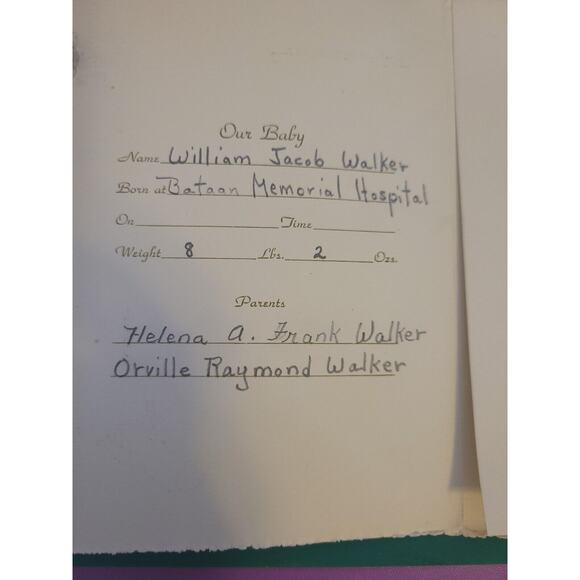 Our Baby
Name William Jacob Walker
Born at Bataan Memorial Hospital
On Time
Weight 8 Lbs. 2 Ozs.
Parents
Helena A. Frank Walker
Orville Raymond Walker